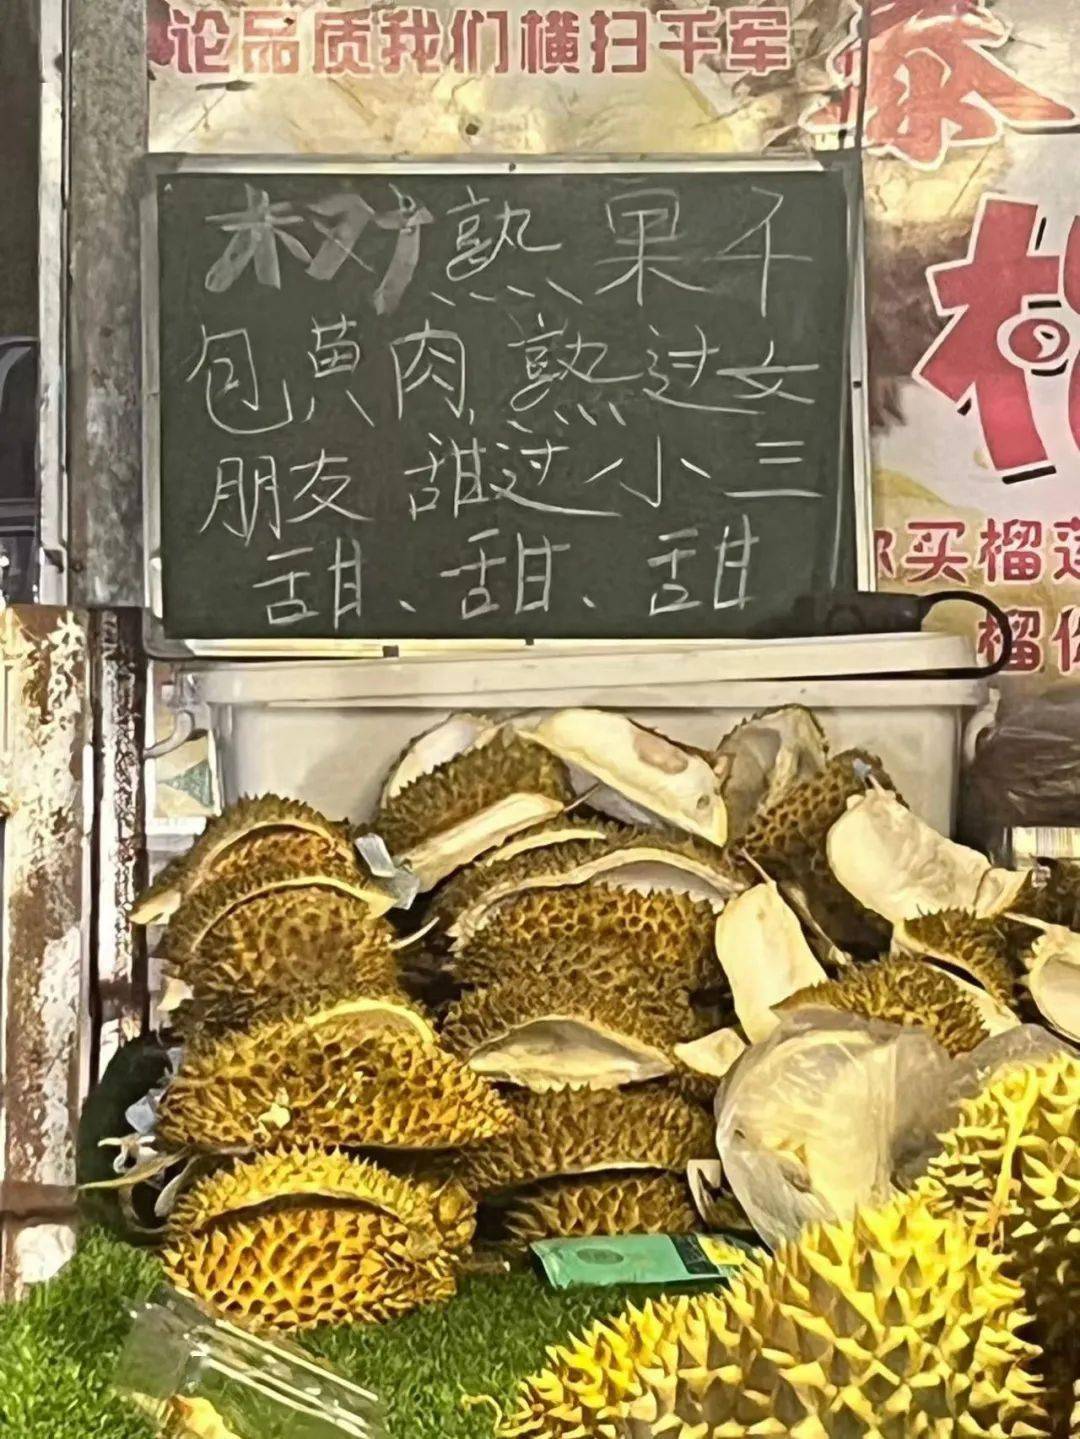 论品质我们横扫千军
泰
树熟果干
包黄肉熟过女
朋友甜过小三
甜、甜、甜
你买榴莲
榴